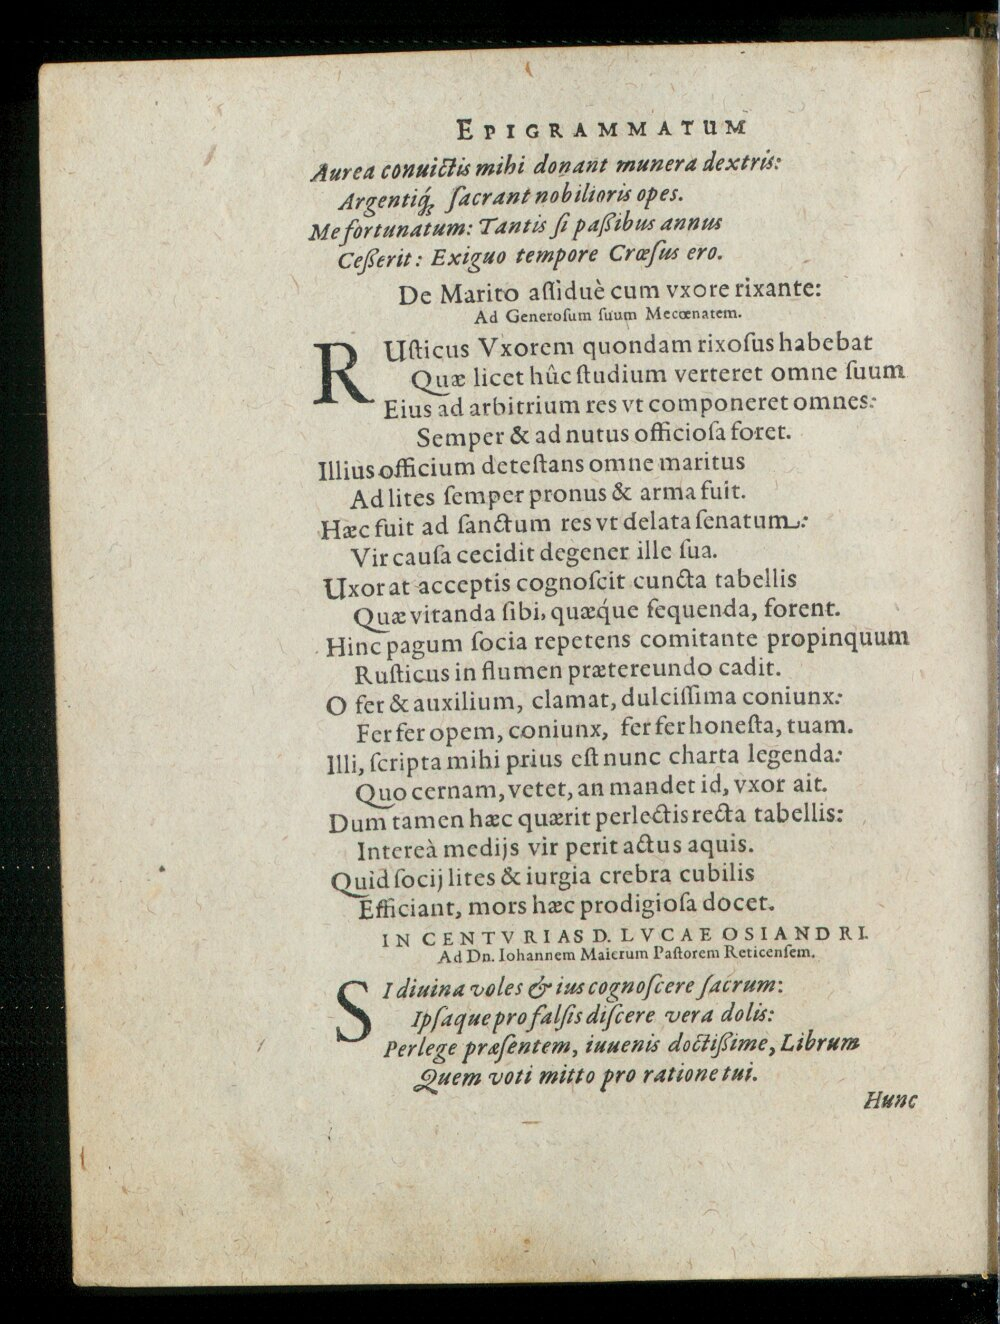 EPIGRAMMATUM
Aurea conuictis mihi donant munera dextris:
Argentiq́ꝫ ſacrant nobilioris opes.
Me fortunatum: Tantis ſi paßibus annus
Ceßerit: Exiguo tempore Crœſus ero.
De Marito aſſiduè cum vxore rixante:
Ad Generoſum ſuum Mecœnatem.
RUſticus Vxorem quondam rixoſus habebat
Quæ licet hûc ſtudium verteret omne ſuum
Eius ad arbitrium res vt componeret omnes:
Semper & ad nutus officioſa foret.
Illius officium deteſtans omne maritus
Ad lites ſemper pronus & arma fuit.
Hæc fuit ad ſanctum res vt delata ſenatum:
Vir cauſa cecidit degener ille ſua.
Uxor at acceptis cognoſcit cuncta tabellis
Quæ vitanda ſibi, quæq́ue ſequenda, forent.
Hinc pagum ſocia repetens comitante propinquum
Ruſticus in flumen prætereundo cadit.
O fer & auxilium, clamat, dulciſſima coniunx:
Fer fer opem, coniunx, fer fer honeſta, tuam.
Illi, ſcripta mihi prius eſt nunc charta legenda:
Quo cernam, vetet, an mandet id, vxor ait.
Dum tamen hæc quærit perlectis recta tabellis:
Intereà medijs vir perit actus aquis.
Quid ſocij lites & iurgia crebra cubilis
Efficiant, mors hæc prodigioſa docet.
IN CENTVRIAS D. LVCAE OSIANDRI.
Ad Dn. Iohannem Maierum Paſtorem Reticenſem.
SI diuina voles & ius cognoſcere ſacrum:
Ipſaque pro falſis diſcere vera dolis:
Perlege præſentem, iuuenis doctißime, Librum
Quem voti mitto pro ratione tui.
Hunc